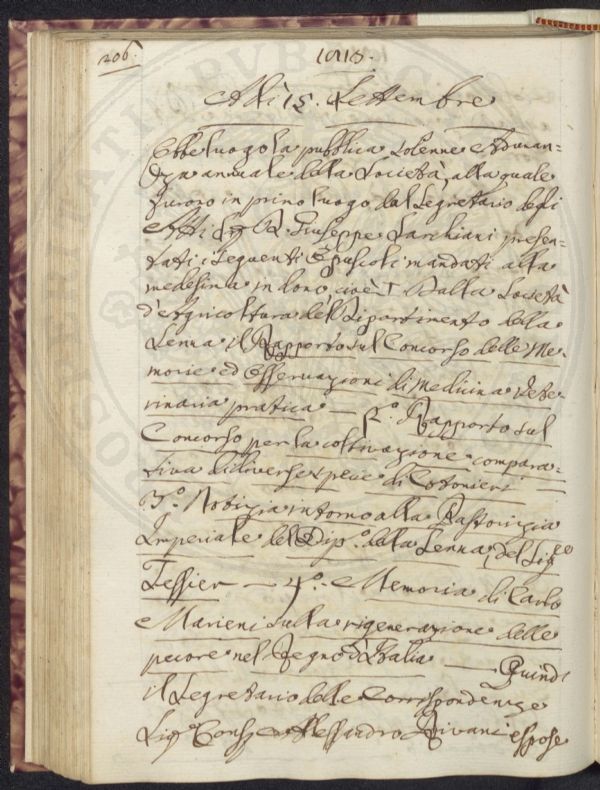 206.
1810.
Adì 15. Settembre
Ebbe luogo la pubblica solenne Adunan=
dza annuale della Società, alla quale
furono in primo luogo dal Segretario degli
Atti Sig. D. Giuseppe Sarchiani presen=
tati i seguenti Opuscoli mandati alla
medesima in dono, cioè 1. Dalla Società
d'Agricoltura del Dipartimento della
Senna il Rapporto sul Concorso delle Me=
morie ed Osservazioni di Medicina Vete=
rinaria pratica — 2.º Rapporto sul
Concorso per la coltivazione compara=
tiva di diverse specie di Cotonieri
3.º Notizia intorno alla Pastorizia
Imperiale del Dip.º della Senna, del Sig.re
Tessier — 4.º Memoria di Carlo
Marieni sulla rigenerazione delle
pecore nel Regno d'Italia — Quindi
il Segretario delle Corrispondenze
Sig.r Cons.re Alessandro Rivani espose